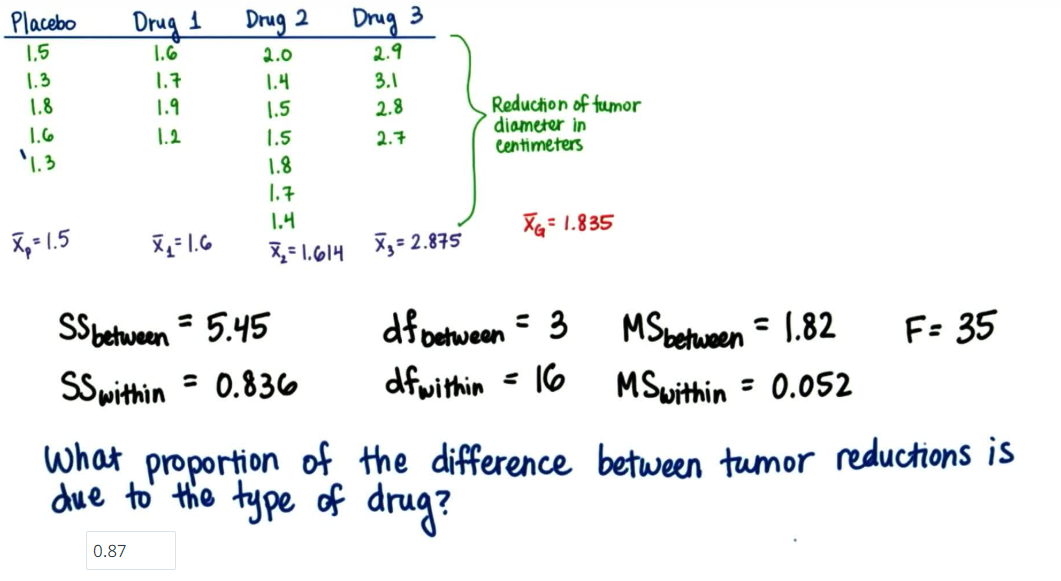 Placebo Drug 1 Drug 2 Drug 3
1.5 1.6 2.0 2.9
1.3 1.7 1.4 3.1
1.8 1.9 1.5 2.8
1.6 1.2 1.5 2.7
1.3 1.8
1.7
1.4
Reduction of tumor
diameter in
centimeters
x̄p = 1.5 x̄1 = 1.6 x̄2 = 1.614 x̄3 = 2.875
x̄G = 1.835
SSbetween = 5.45 dfbetween = 3 MSbetween = 1.82 F = 35
SSwithin = 0.836 dfwithin = 16 MSwithin = 0.052
What proportion of the difference between tumor reductions is
due to the type of drug?
0.87